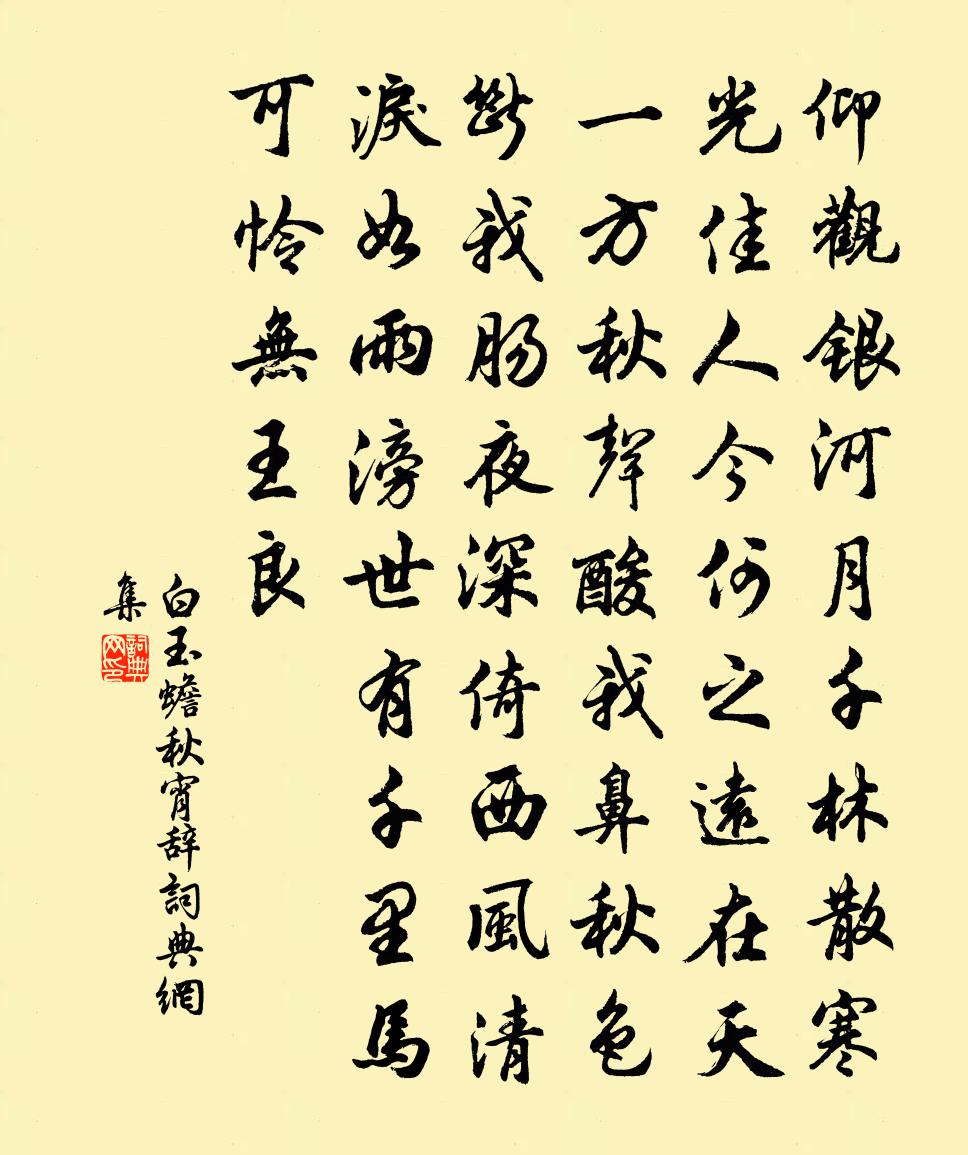 仰觀銀河月千林散寒
光佳人今何之遠在天
一方秋聲酸我鼻秋色
斷我腸夜深倚西風清
淚如雨滂世有千里馬
可憐無王良
白玉蟾秋宵辞詞典網
集
詞典网印